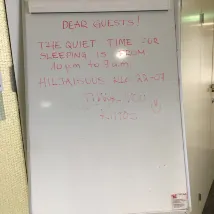 DEAR GUESTS!
THE QUIET TIME FOR
SLEEPING IS FROM
10 pm to 7 am
HILJAISUUS KLO 22-07